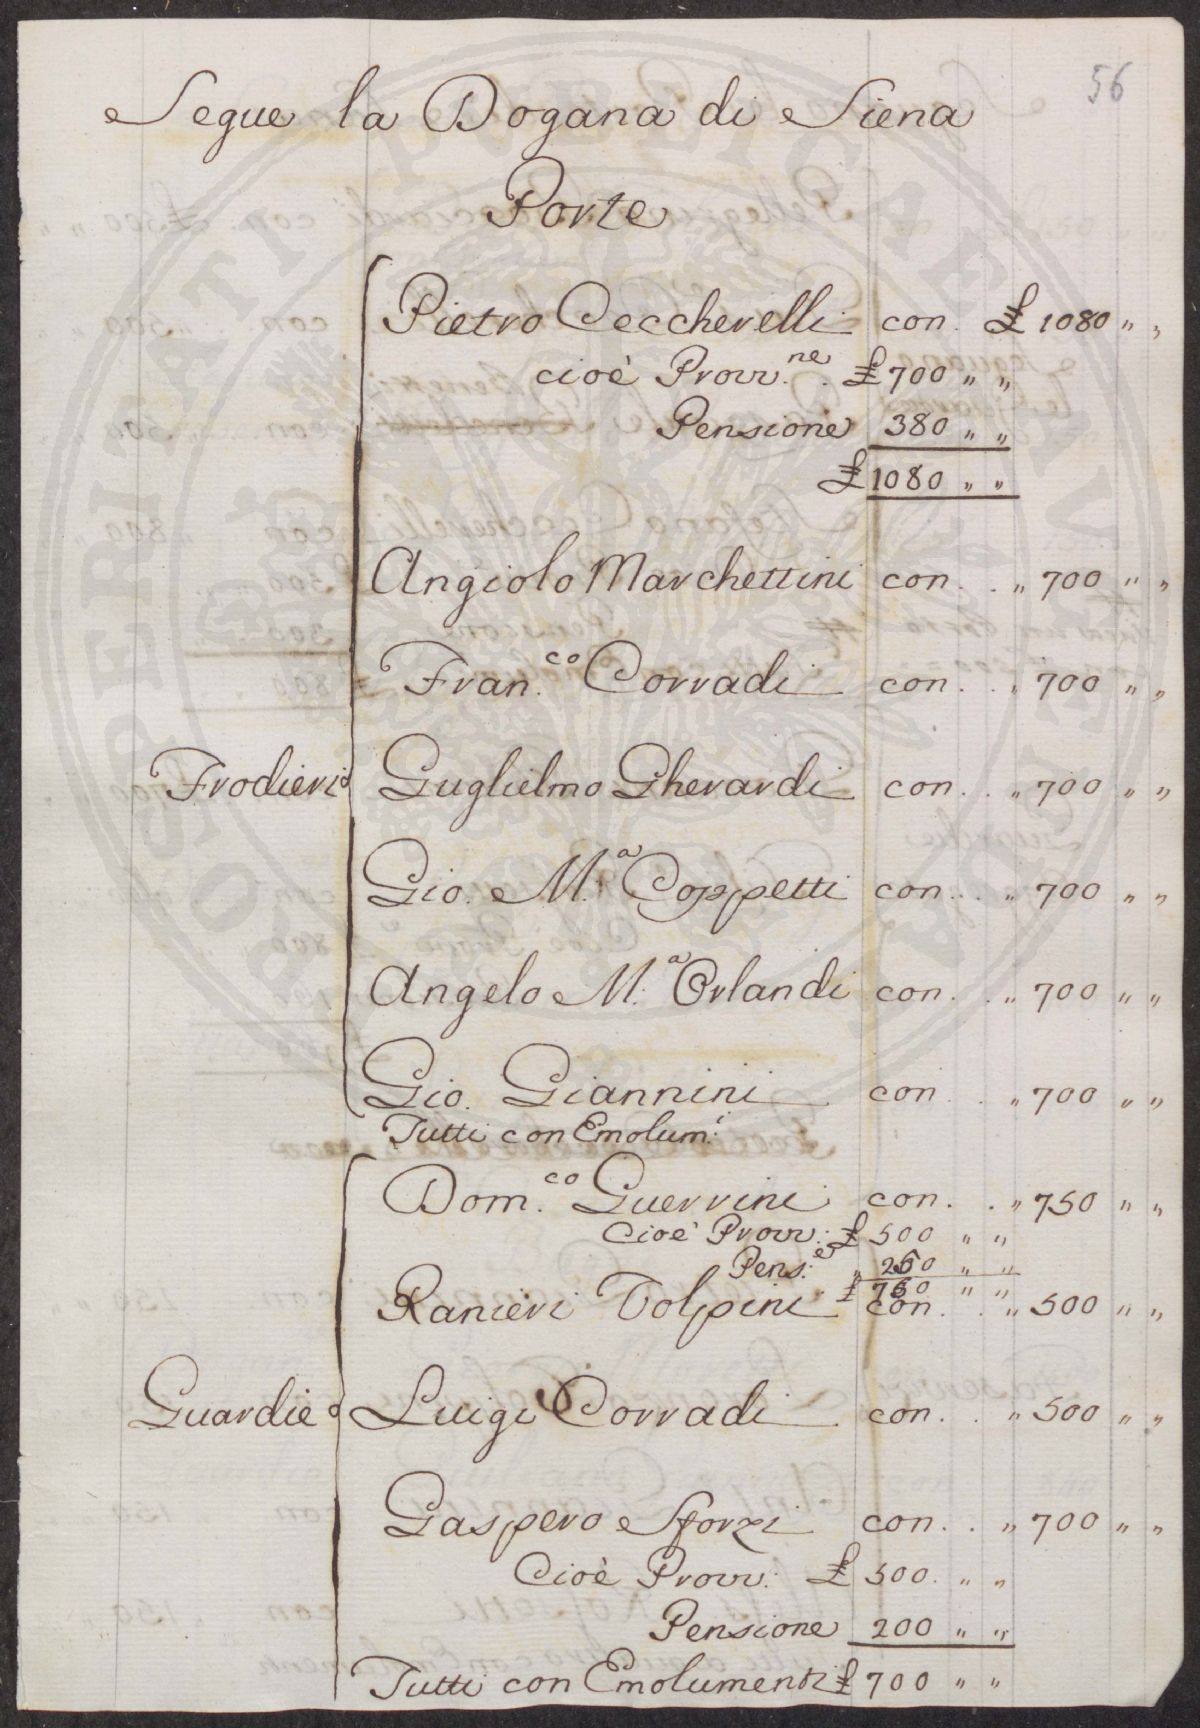 56
Segue la Dogana di Siena
Porte
Pietro Ceccherelli con. £ 1080 " "
cioè Provv.ne £ 700 " "
Pensione 380 " "
£ 1080 " "
Angiolo Marchettini con . . " 700 " "
Fran.co Corradi con . . " 700 " "
Frodieri Guglielmo Gherardi con . . " 700 " "
Gio. M.a Coppetti con . . " 700 " "
Angelo M.a Orlandi con . . " 700 " "
Gio. Giannini con . . " 700 " "
Tutti con Emolum.i
Dom.co Guerrini con . . " 750 " "
Cioè Provv: £ 500 " "
Pens:e " 250 " "
£ 750 " "
Ranieri Volpini con . . " 500 " "
Guardie Luigi Corradi con . . " 500 " "
Gaspero Sforzi con . . " 700 " "
Cioè Provv: £ 500 " "
Pensione 200 " "
Tutti con Emolumenti £ 700 " "